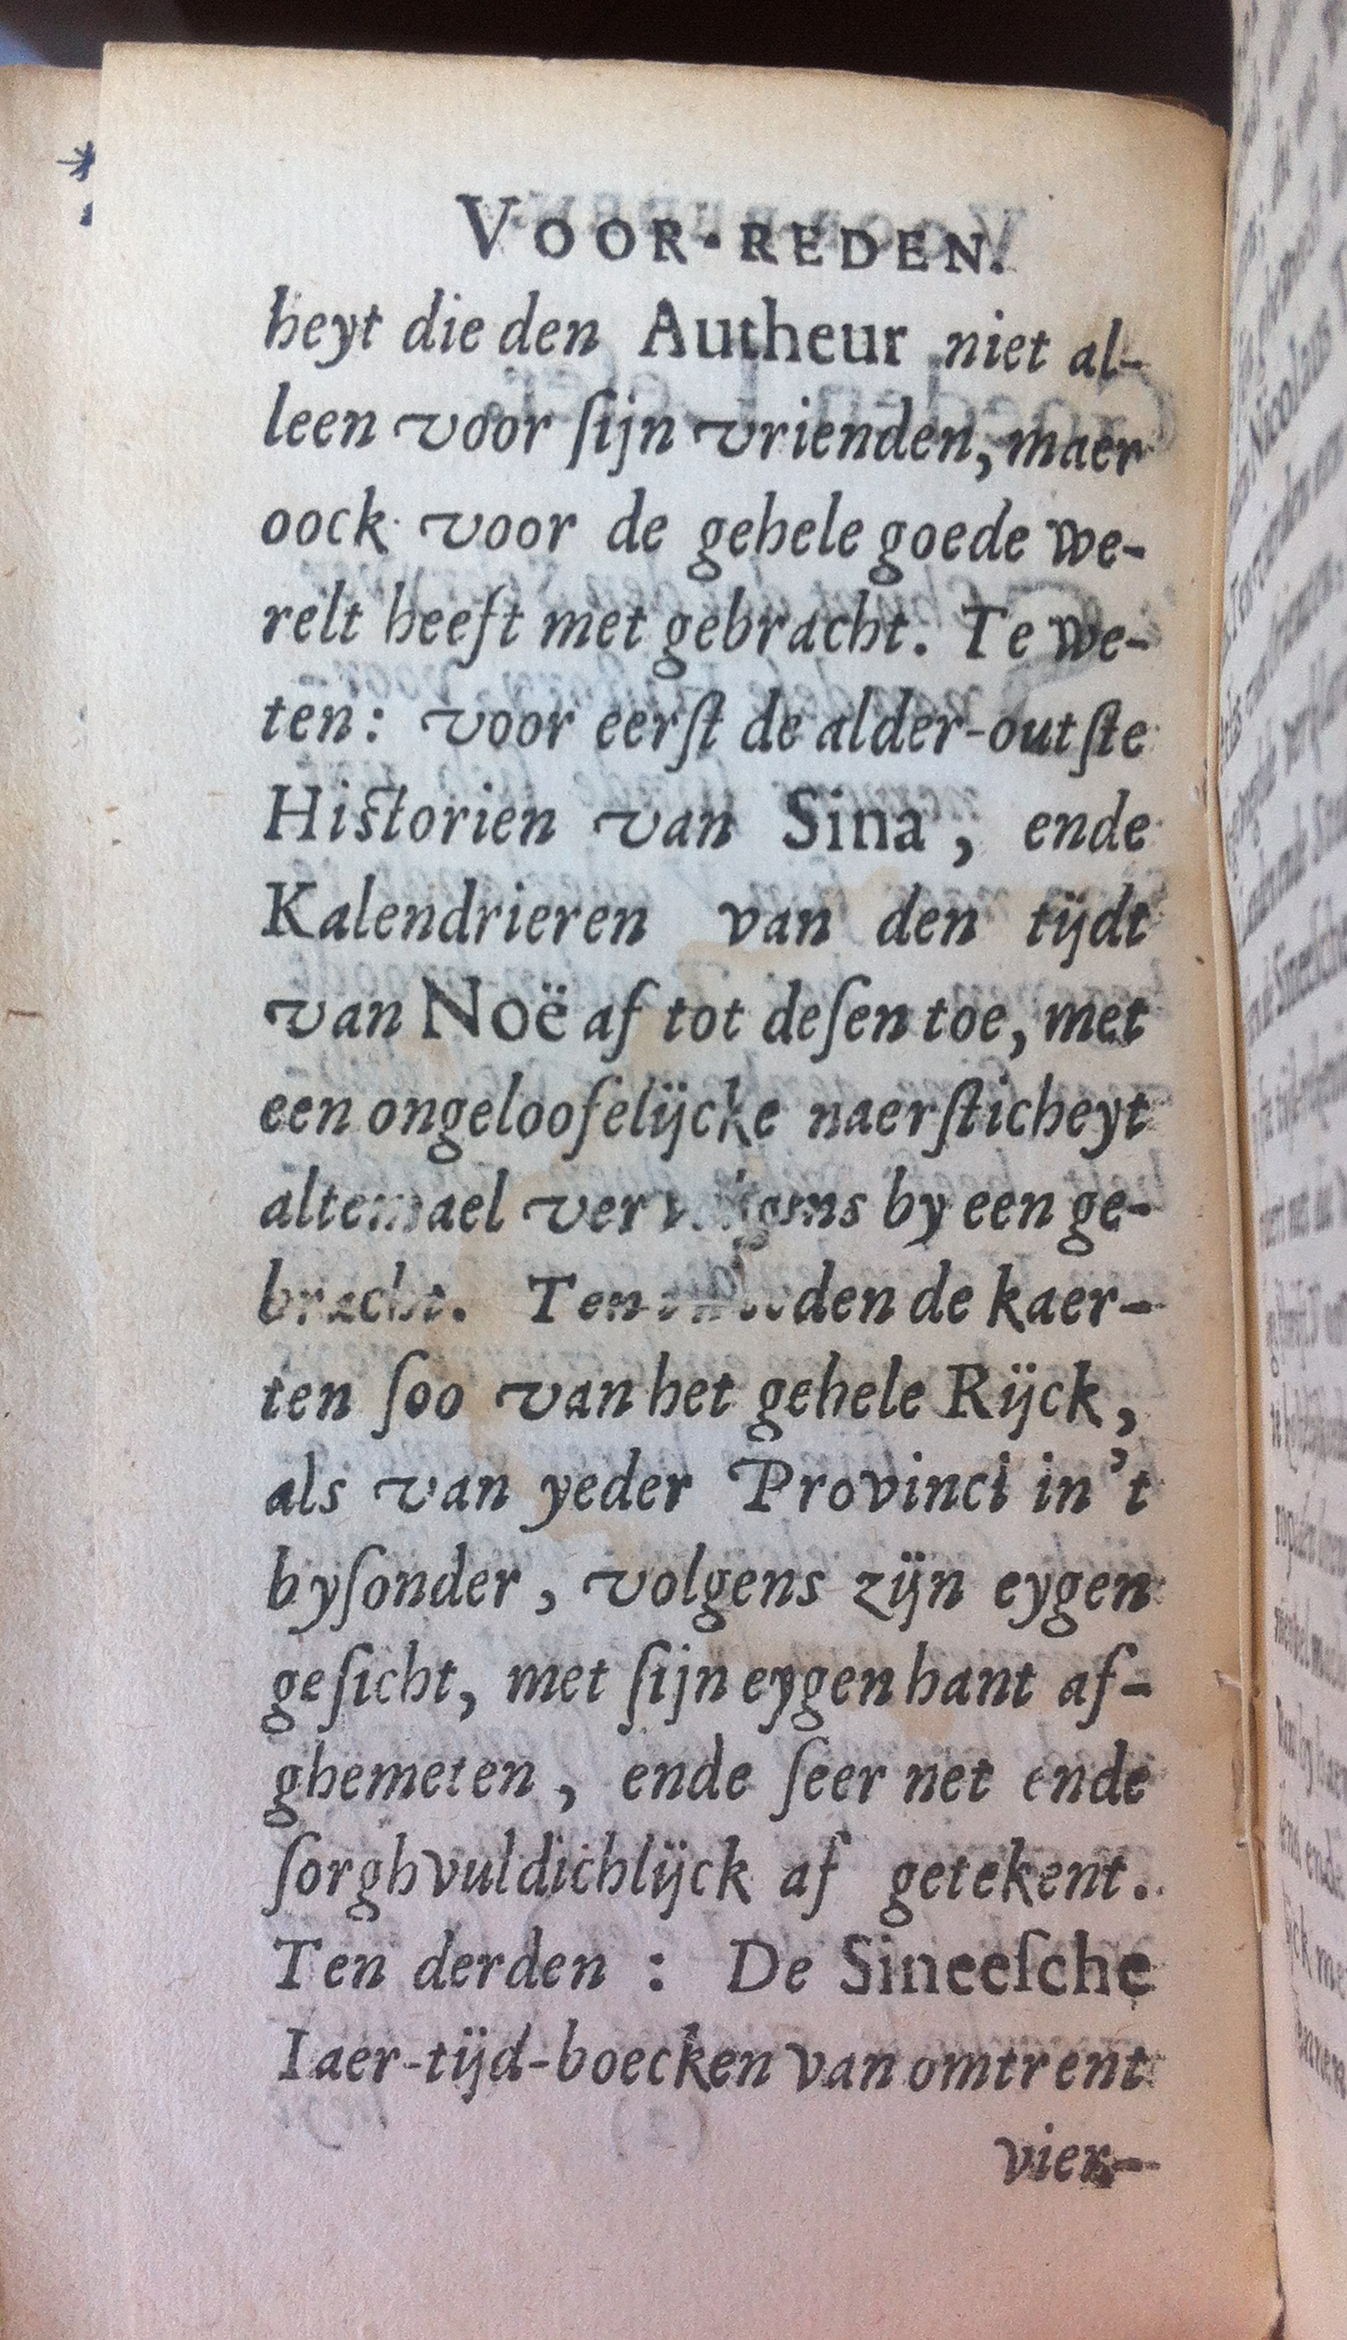 VOOR-REDEN.
heyt die den Autheur niet al-
leen voor ſijn vrienden, maer
oock voor de gehele goede we-
relt heeft met gebracht. Te we-
ten: voor eerſt de alder-outſte
Historien van Sina, ende
Kalendrieren van den tijdt
van Noë af tot deſen toe, met
een ongeloofelijcke naerſticheyt
altemael by een ge-
bracht. den de kaer-
ten ſoo van het gehele Rijck,
als van yeder Provinci in't
byſonder, volgens zijn eygen
geſicht, met ſijn eygen hant af-
ghemeten, ende ſeer net ende
ſorghvuldichlijck af getekent.
Ten derden : De Sineeſche
Iaer-tijd-boecken van omtrent
vier-